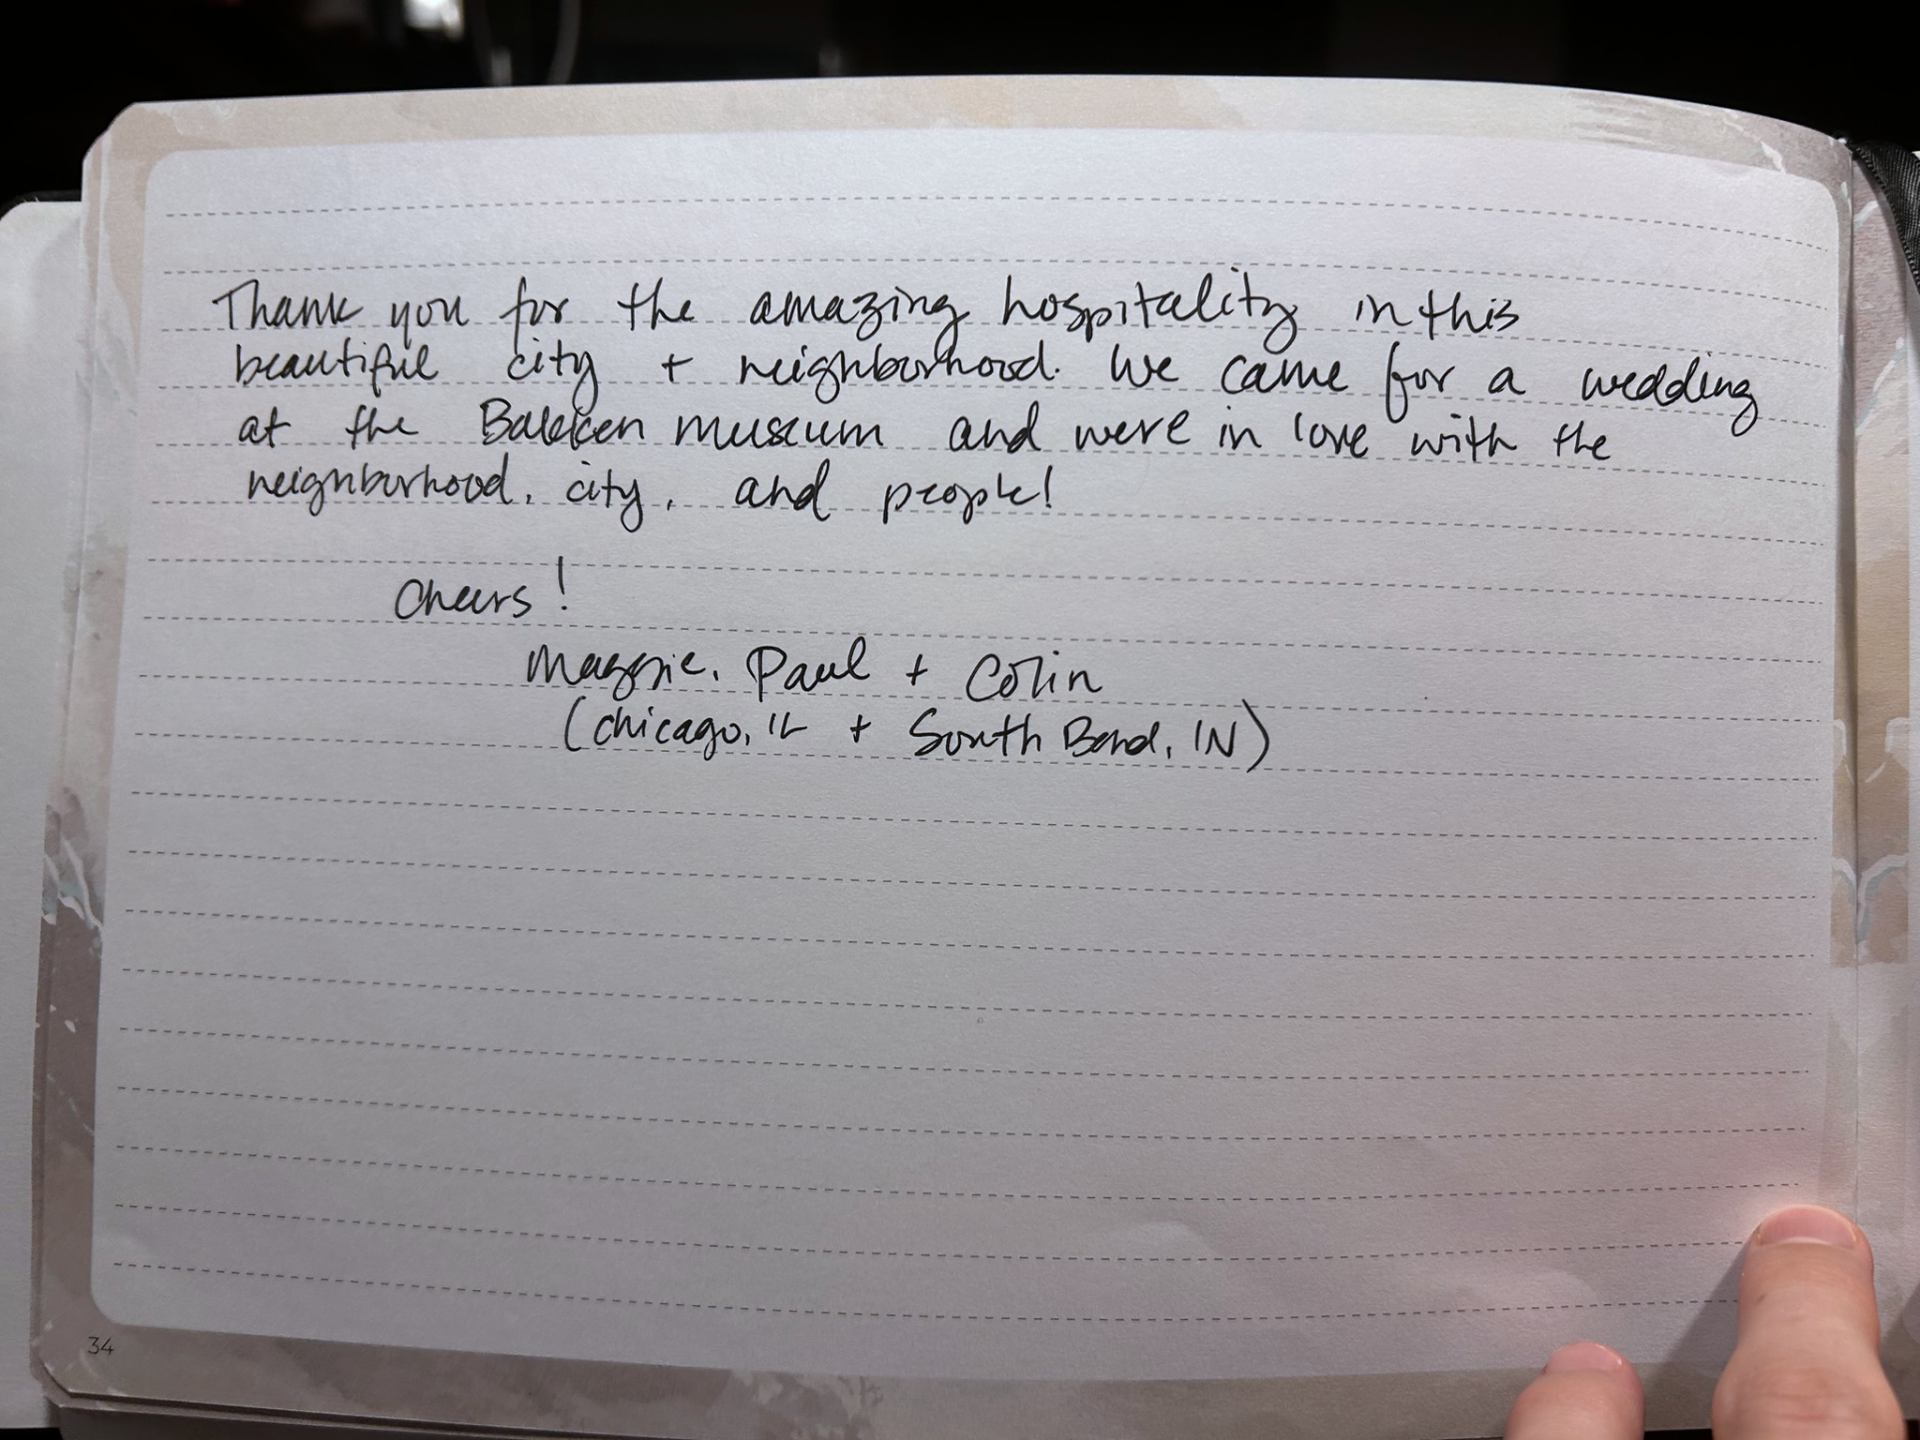 Thank you for the amazing hospitality in this
beautiful city + neighborhood. We came for a wedding
at the Bakken museum and were in love with the
neighborhood, city, and people!
Cheers!
Maggie, Paul + Colin
(Chicago, IL + South Bend, IN)
34